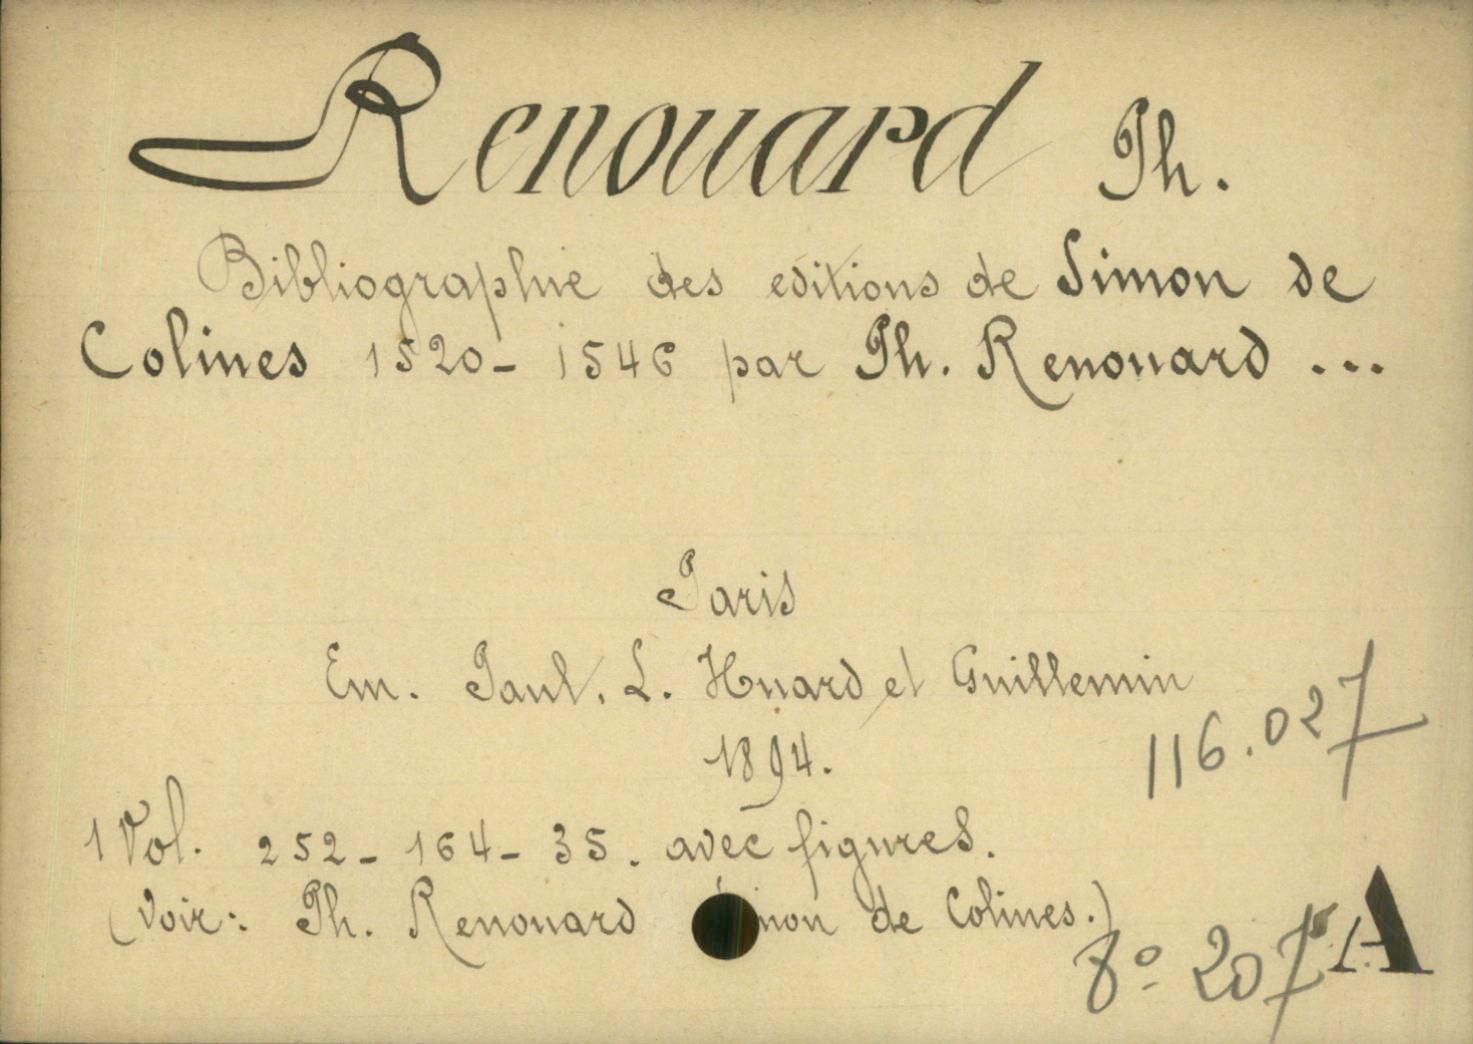 Renouard Ph.
Bibliographie des editions de Simon de
Colines 1520-1546 par Ph. Renouard ...
Paris
Em. Paul. L. Huard et Guillemin
1894.
116.027
1 Vol. 252-164-35. avec figures.
(Voir: Ph. Renouard Simon de Colines.)
8º 207 A